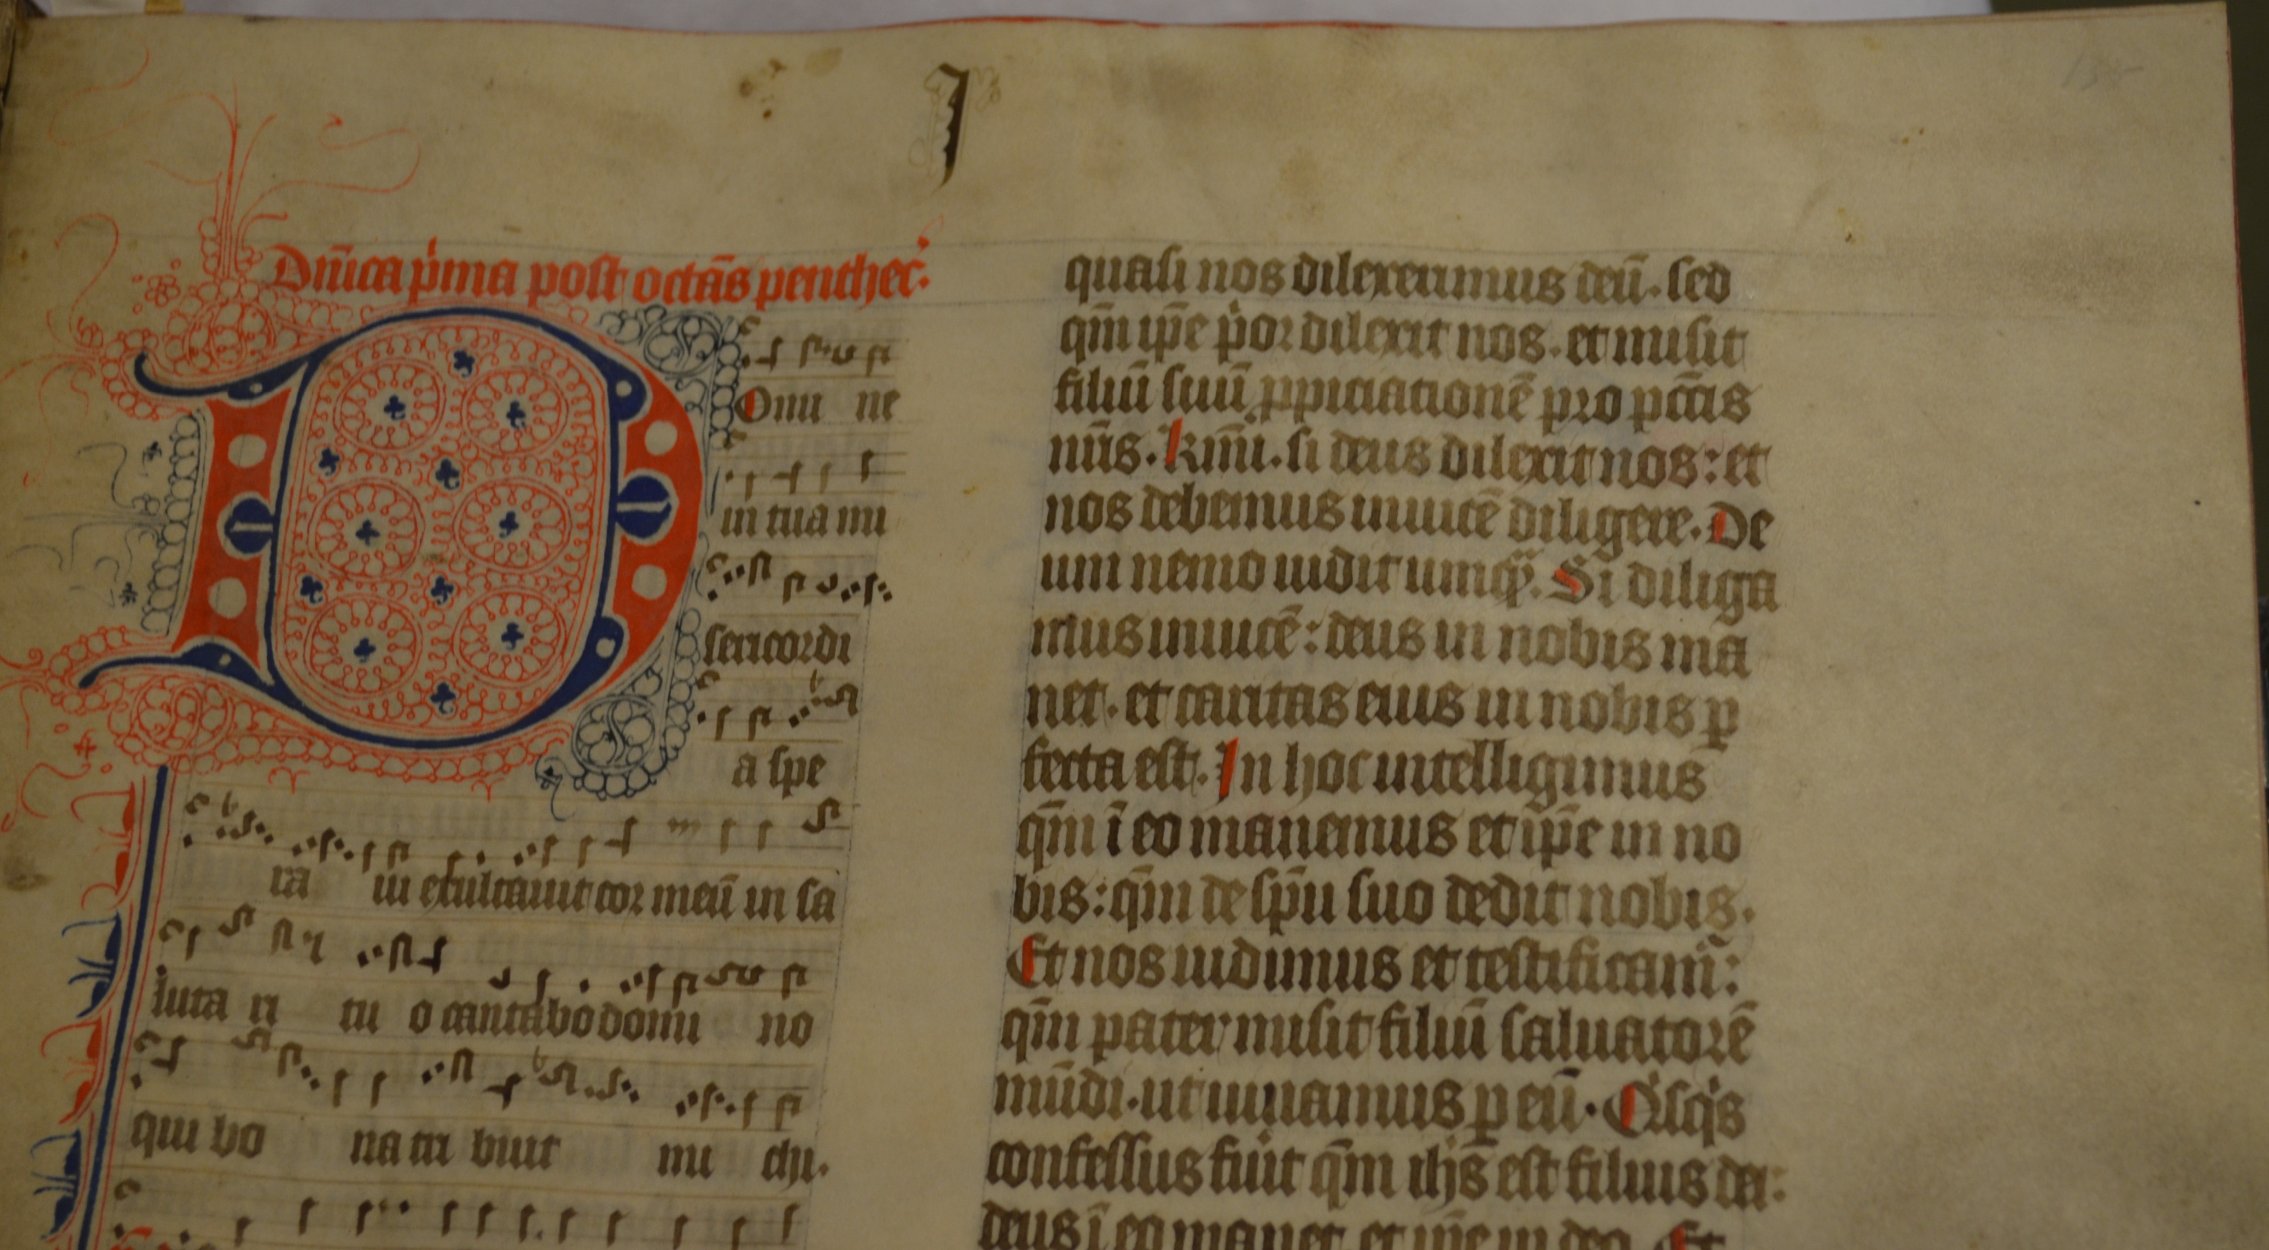 I
Dn̄ica p'ma post octāȝ penthec̉.
D Omi ne
in tua mi
sericordi
a spe
ra ui exultauit cor meū in sa
luta ri tu o cantabo domi no
qui bo na tri buit mi chi.
quasi nos dilexerimus deū. sed
qm̄ ip̄e p'or dilexit nos. et misit
filiū suū ꝓpiciationē pro pctīs
nr̄is. Kmī. si deus dilexit nos: et
nos debemus inuicē diligere. De
um nemo uidit umqᷓ. Si diliga
mus inuicē: deus in nobis ma
net. et caritas eius in nobis ꝑ
fecta est. In hoc intelligimus
qm̄ ī eo manemus et ip̄e in no
bis: qm̄ de sp̄u suo dedit nobis.
Et nos uidimus et testificam̃:
qm̄ pater misit filiū saluatorē
mūdi. ut uiuamus ꝑ eū. Q'sq's
confessus fuit qm̄ ih̄s est filius dei:
deus ī eo manet et ip̄e in deo. Et